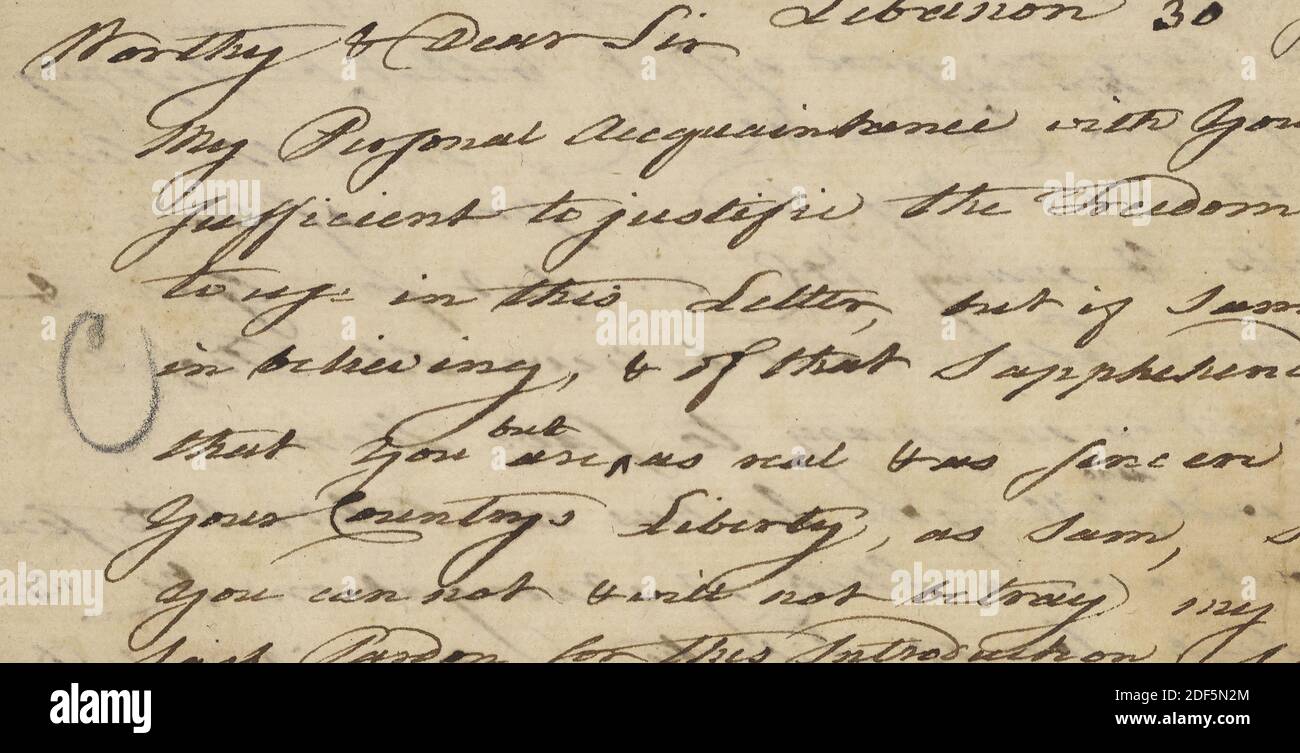 Lebanon 30
Worthy & Dear Sir
My Personal Accquaintence with You
sufficient to justifie the Freedom
to use in this Letter, but if I am
in believing, & of that I apprehend
but
that You are ^ as real & as sincere
Your Countrys Liberty, as I am,
You can not & will not betray my
I ask Pardon for this Introduction
alamy
Image ID: 2DF5N2M
www.alamy.com